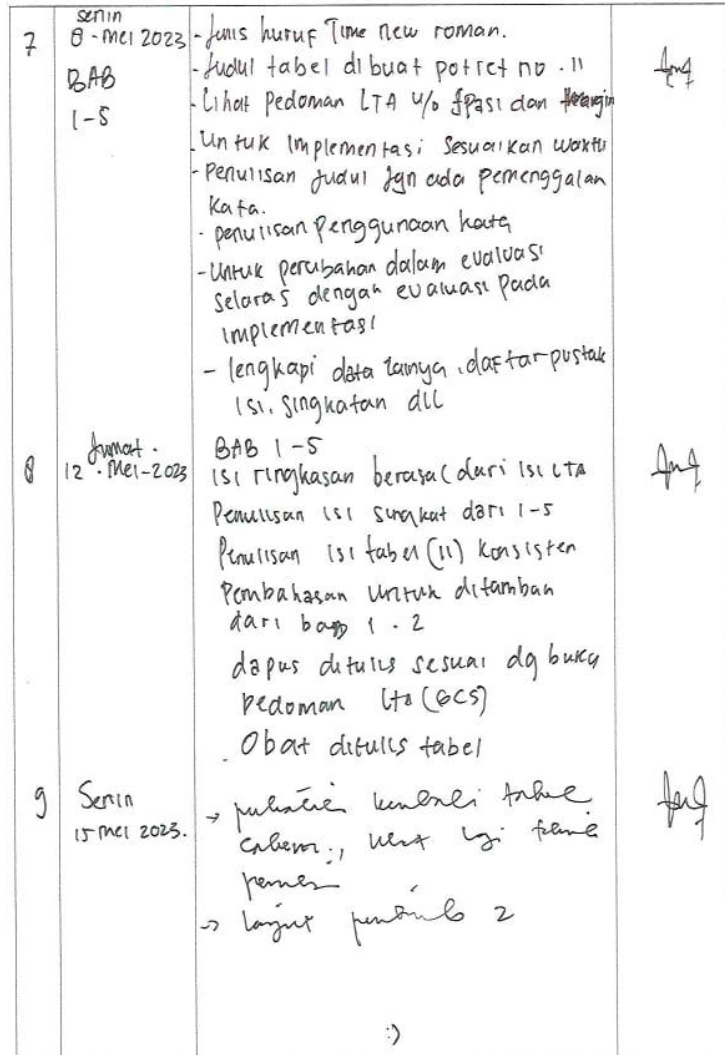 7
senin
8 - Mei 2023
BAB
1-5
- Jenis huruf Time new roman.
- Judul tabel dibuat potret no. 11
- Lihat Pedoman LTA u/o Spasi dan
- Untuk implementasi Sesuaikan waktu
- Penulisan Judul Jgn ada pemenggalan
Kata.
- penulisan penggunaan kata
- Untuk perubahan dalam evaluasi
Selaras dengan evaluasi pada
implementasi
- lengkapi data lainya, daftar pustak
isi, singkatan dll
8
Jumat.
12 - Mei - 2023
BAB 1-5
isi ringkasan berasal dari isi LTA
Penulisan isi singkat dari 1-5
Penulisan isi tabel (11) Konsisten
Pembahasan Untuk ditambah
dari bab 1. 2
dapus ditulis sesuai dg buku
Pedoman lta (GCS)
. Obat ditulis tabel
9
Senin
15 mei 2023.
→ kembali
→ lanjut 2
:)